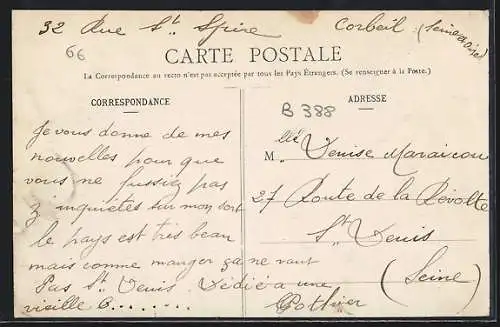 32 Rue St Spire Corbeil (Seine et Oise)
66
CARTE POSTALE
La Correspondance au recto n'est pas acceptée par tous les Pays Étrangers. (Se renseigner à la Poste.)
CORRESPONDANCE
ADRESSE
B 388
Je vous donne de mes
nouvelles pour que
vous ne fussiez pas
z'inquiètes sur mon sort
le pays est très beau
mais comme manger ça ne vaut
Pas St Denis. Dédié a une
vieille C........
M lle Denise
27 Route de la Révolte
St Denis
(Seine)